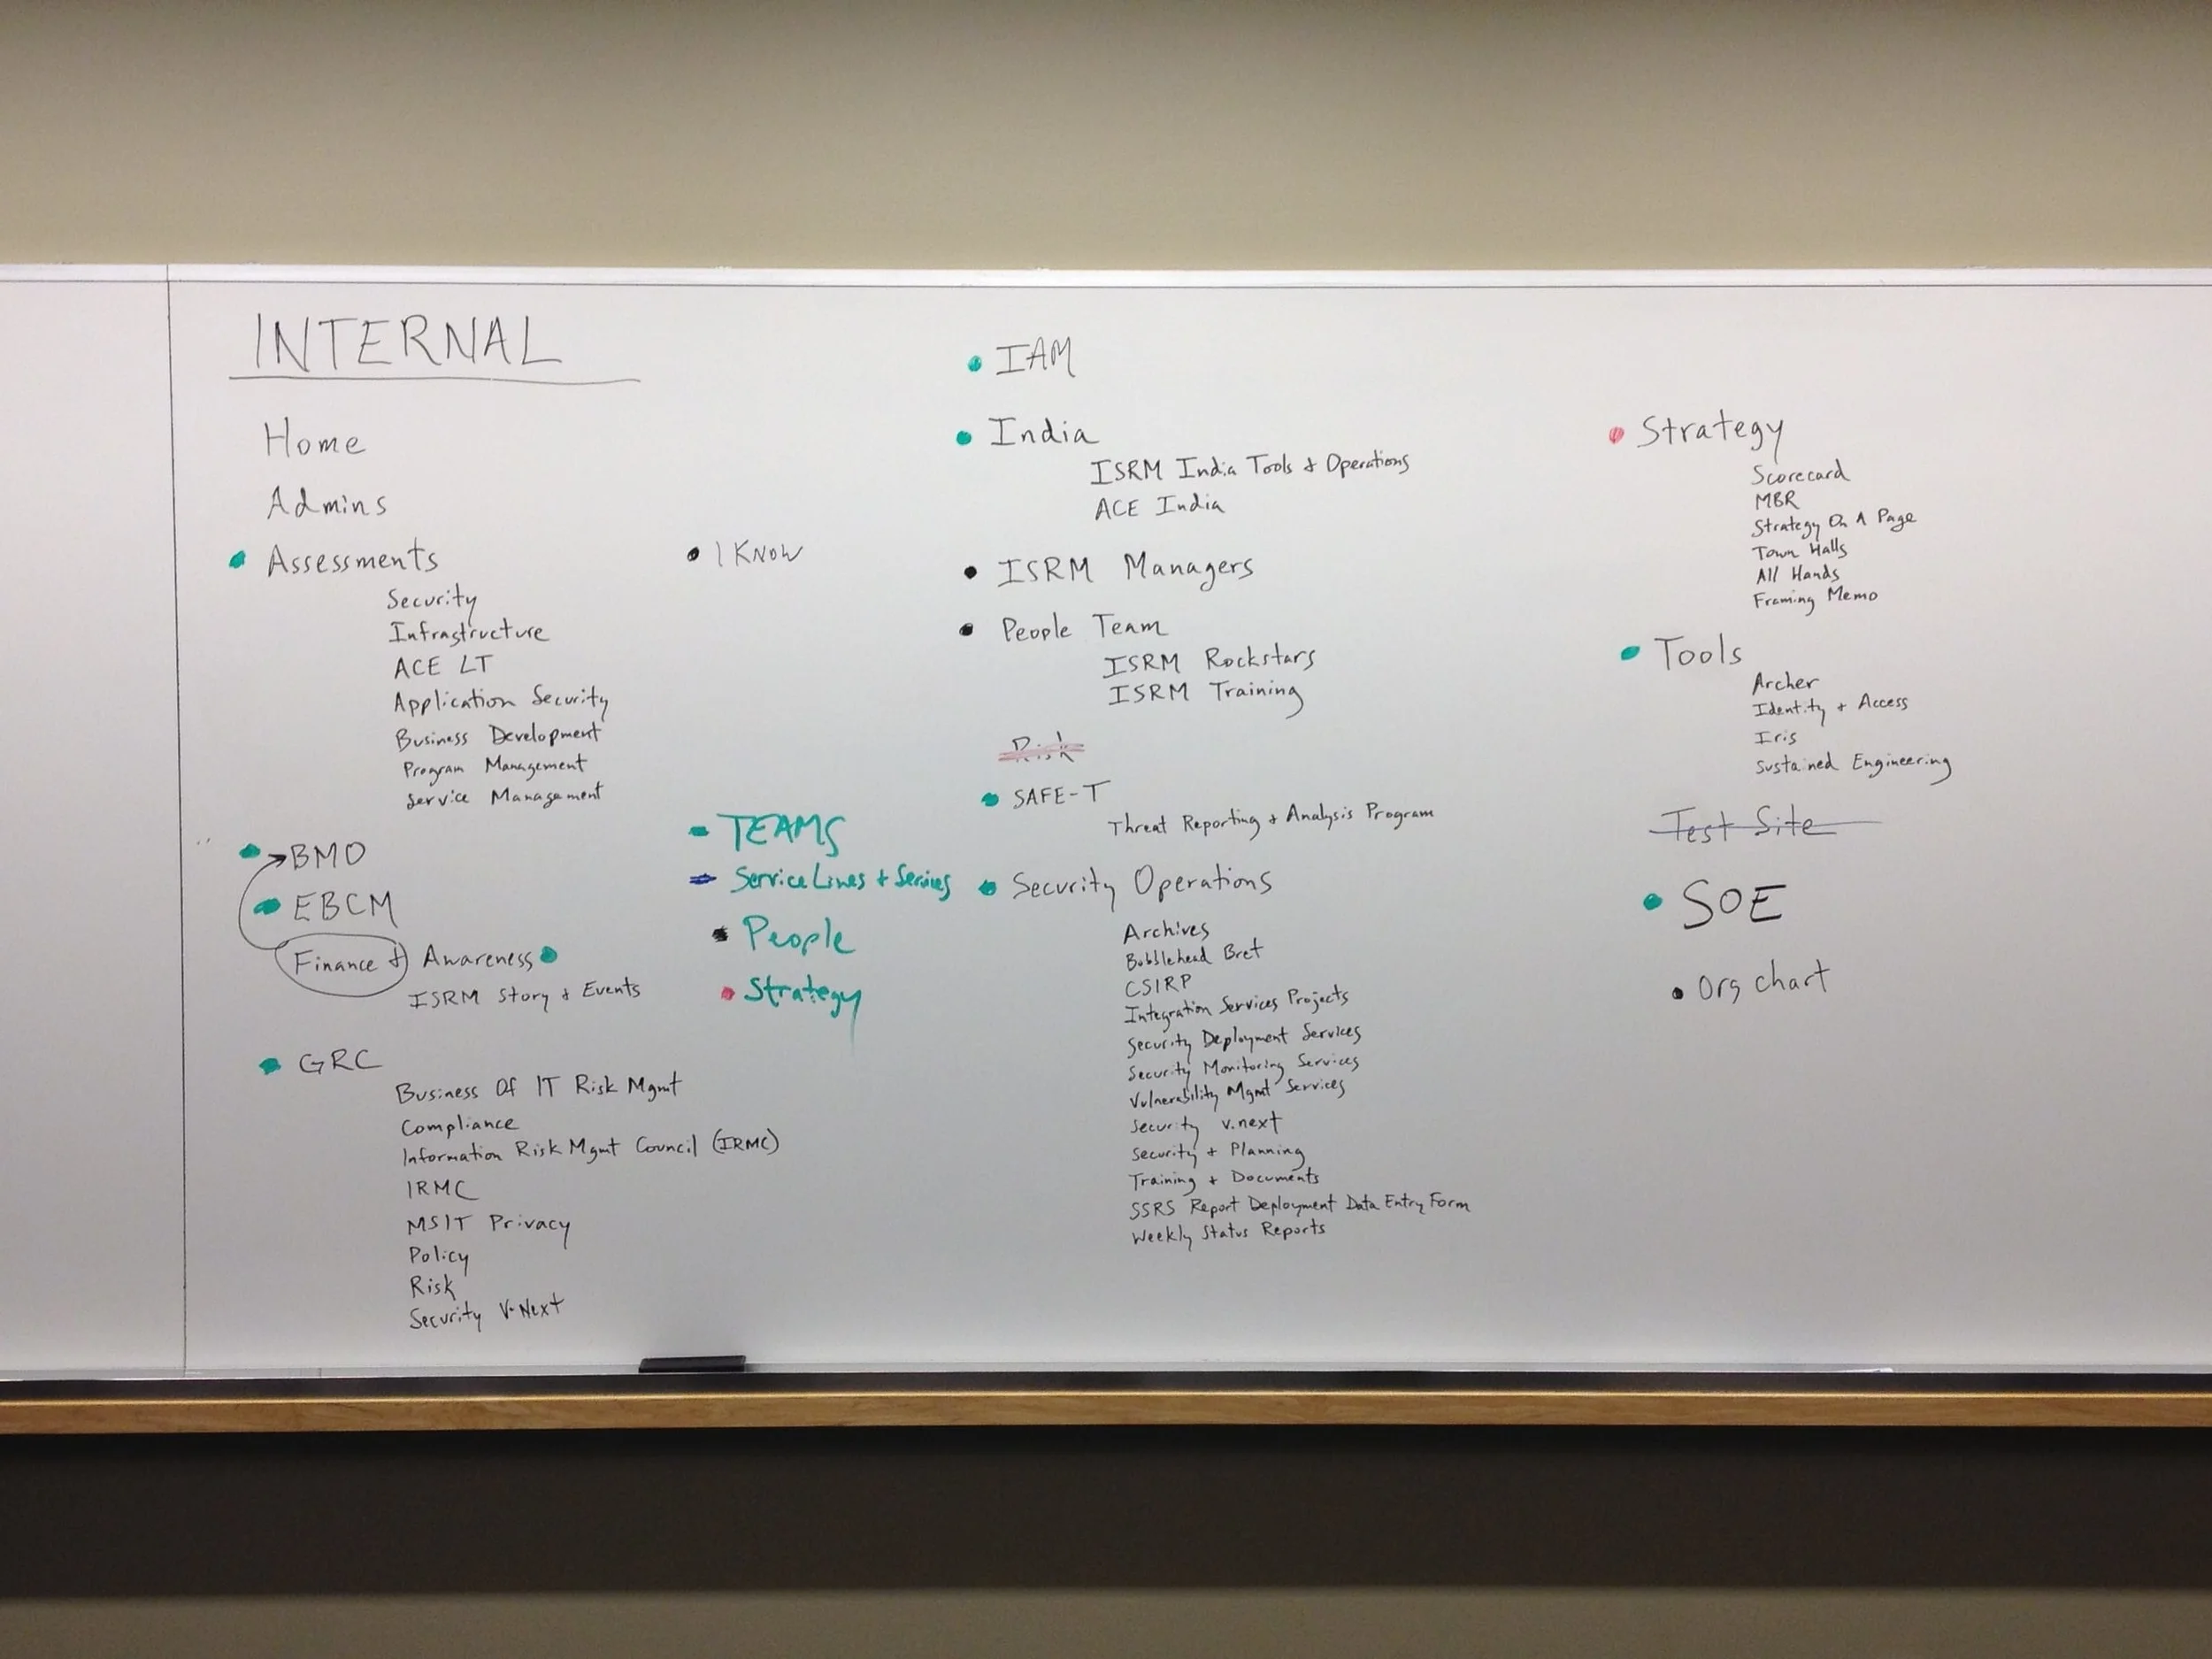 INTERNAL
Home
Admins
Assessments
Security
Infrastructure
ACE LT
Application Security
Business Development
Program Management
Service Management
BMO
EBCM
Finance & Awareness
ISRM Story & Events
GRC
Business Of IT Risk Mgmt
Compliance
Information Risk Mgmt Council (IRMC)
IRMC
MSIT Privacy
Policy
Risk
Security V.Next
I KNOW
TEAMS
Service Lines & Services
People
Strategy
IAM
India
ISRM India Tools & Operations
ACE India
ISRM Managers
People Team
ISRM Rockstars
ISRM Training
Risk
SAFE-T
Threat Reporting & Analysis Program
Security Operations
Archives
Bobblehead Bret
CSIRP
Integration Services Projects
Security Deployment Services
Security Monitoring Services
Vulnerability Mgmt Services
Security v.next
Security & Planning
Training & Documents
SSRS Report Deployment Data Entry Form
Weekly Status Reports
Strategy
Scorecard
MBR
Strategy On A Page
Town Halls
All Hands
Framing Memo
Tools
Archer
Identity & Access
Iris
Sustained Engineering
Test Site
SOE
Org chart